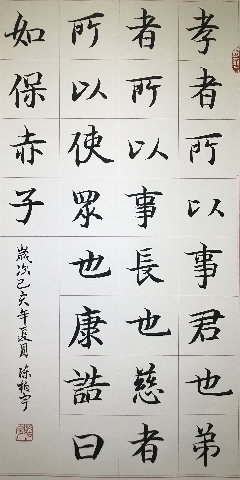 孝者所以事君也弟
者所以事長也慈者
所以使眾也康誥曰
如保赤子
歲次己亥年夏月 陳